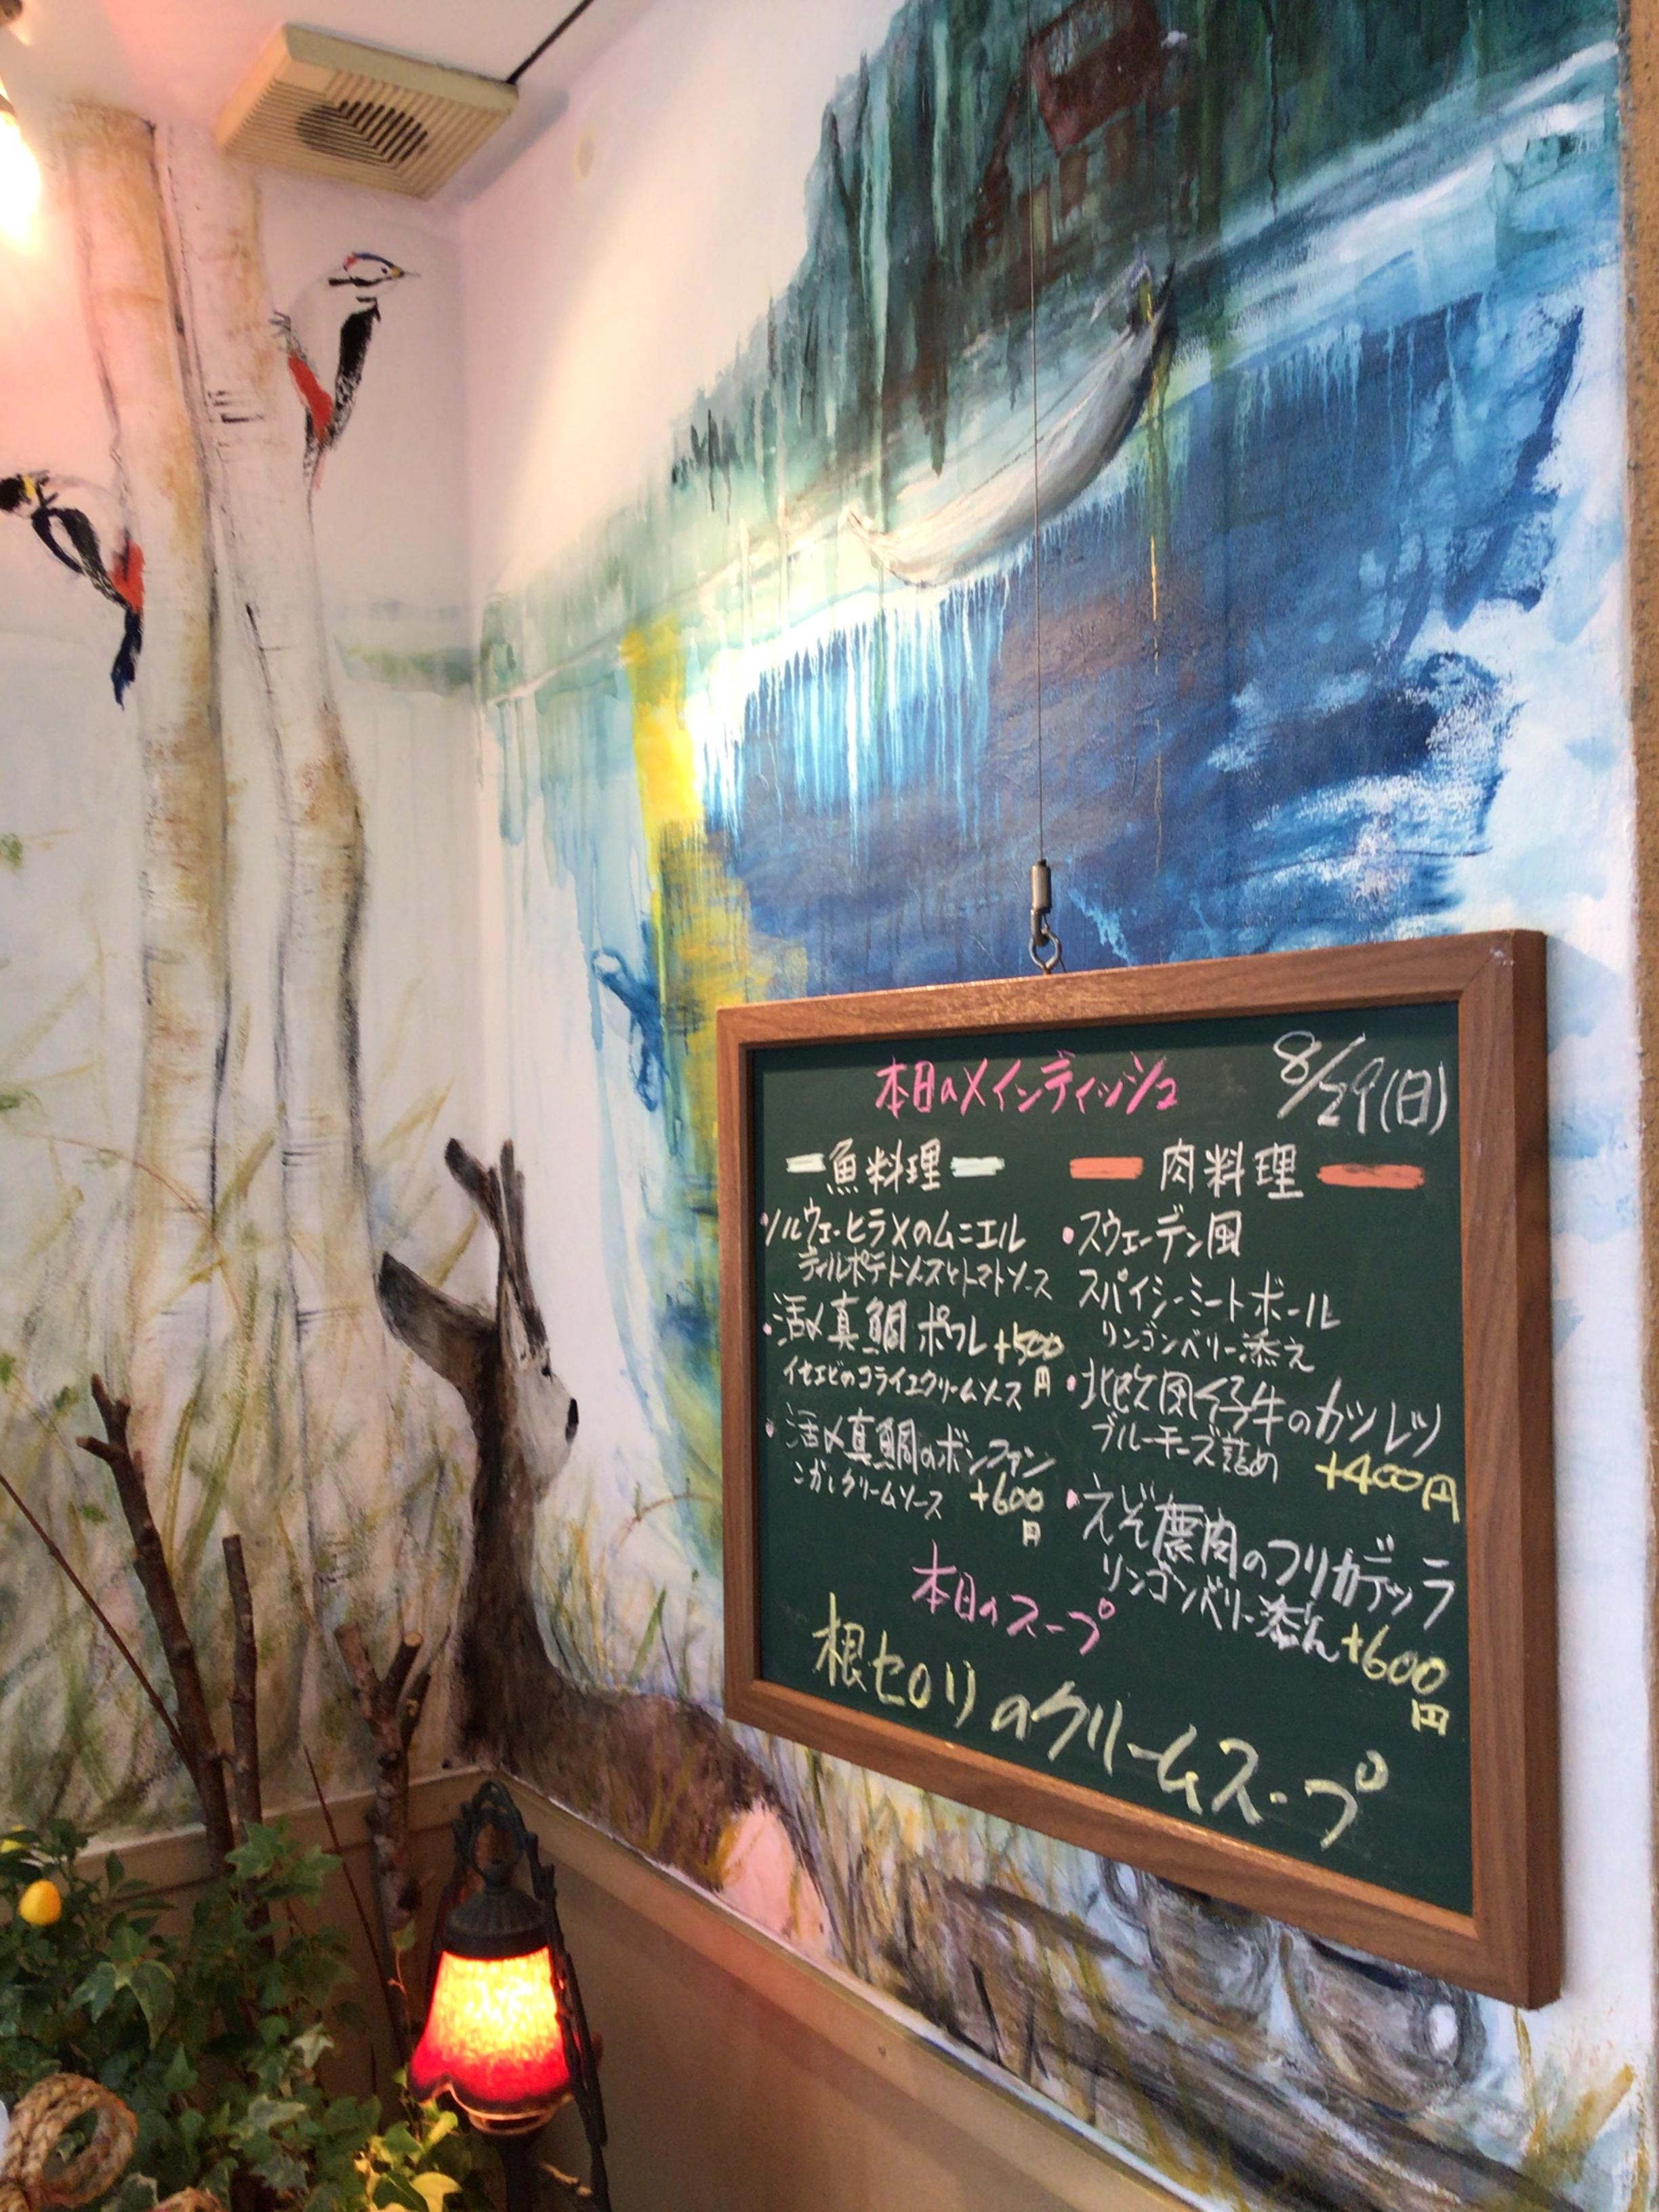 本日のメインディッシュ
8/29(日)
魚料理
ノルウェーヒラメのムニエル
ディルポテトソースとトマトソース
・活〆真鯛ポワレ +500円
イセエビのコライユクリームソース
・活〆真鯛のボンファン
こがしクリームソース +600円
肉料理
・スウェーデン風
スパイシーミートボール
リンゴンベリー添え
・北欧風仔牛のカツレツ
ブルーチーズ詰め +400円
・えぞ鹿肉のフリカデッラ
リンゴンベリー添え +600円
本日のスープ
根セロリのクリームスープ